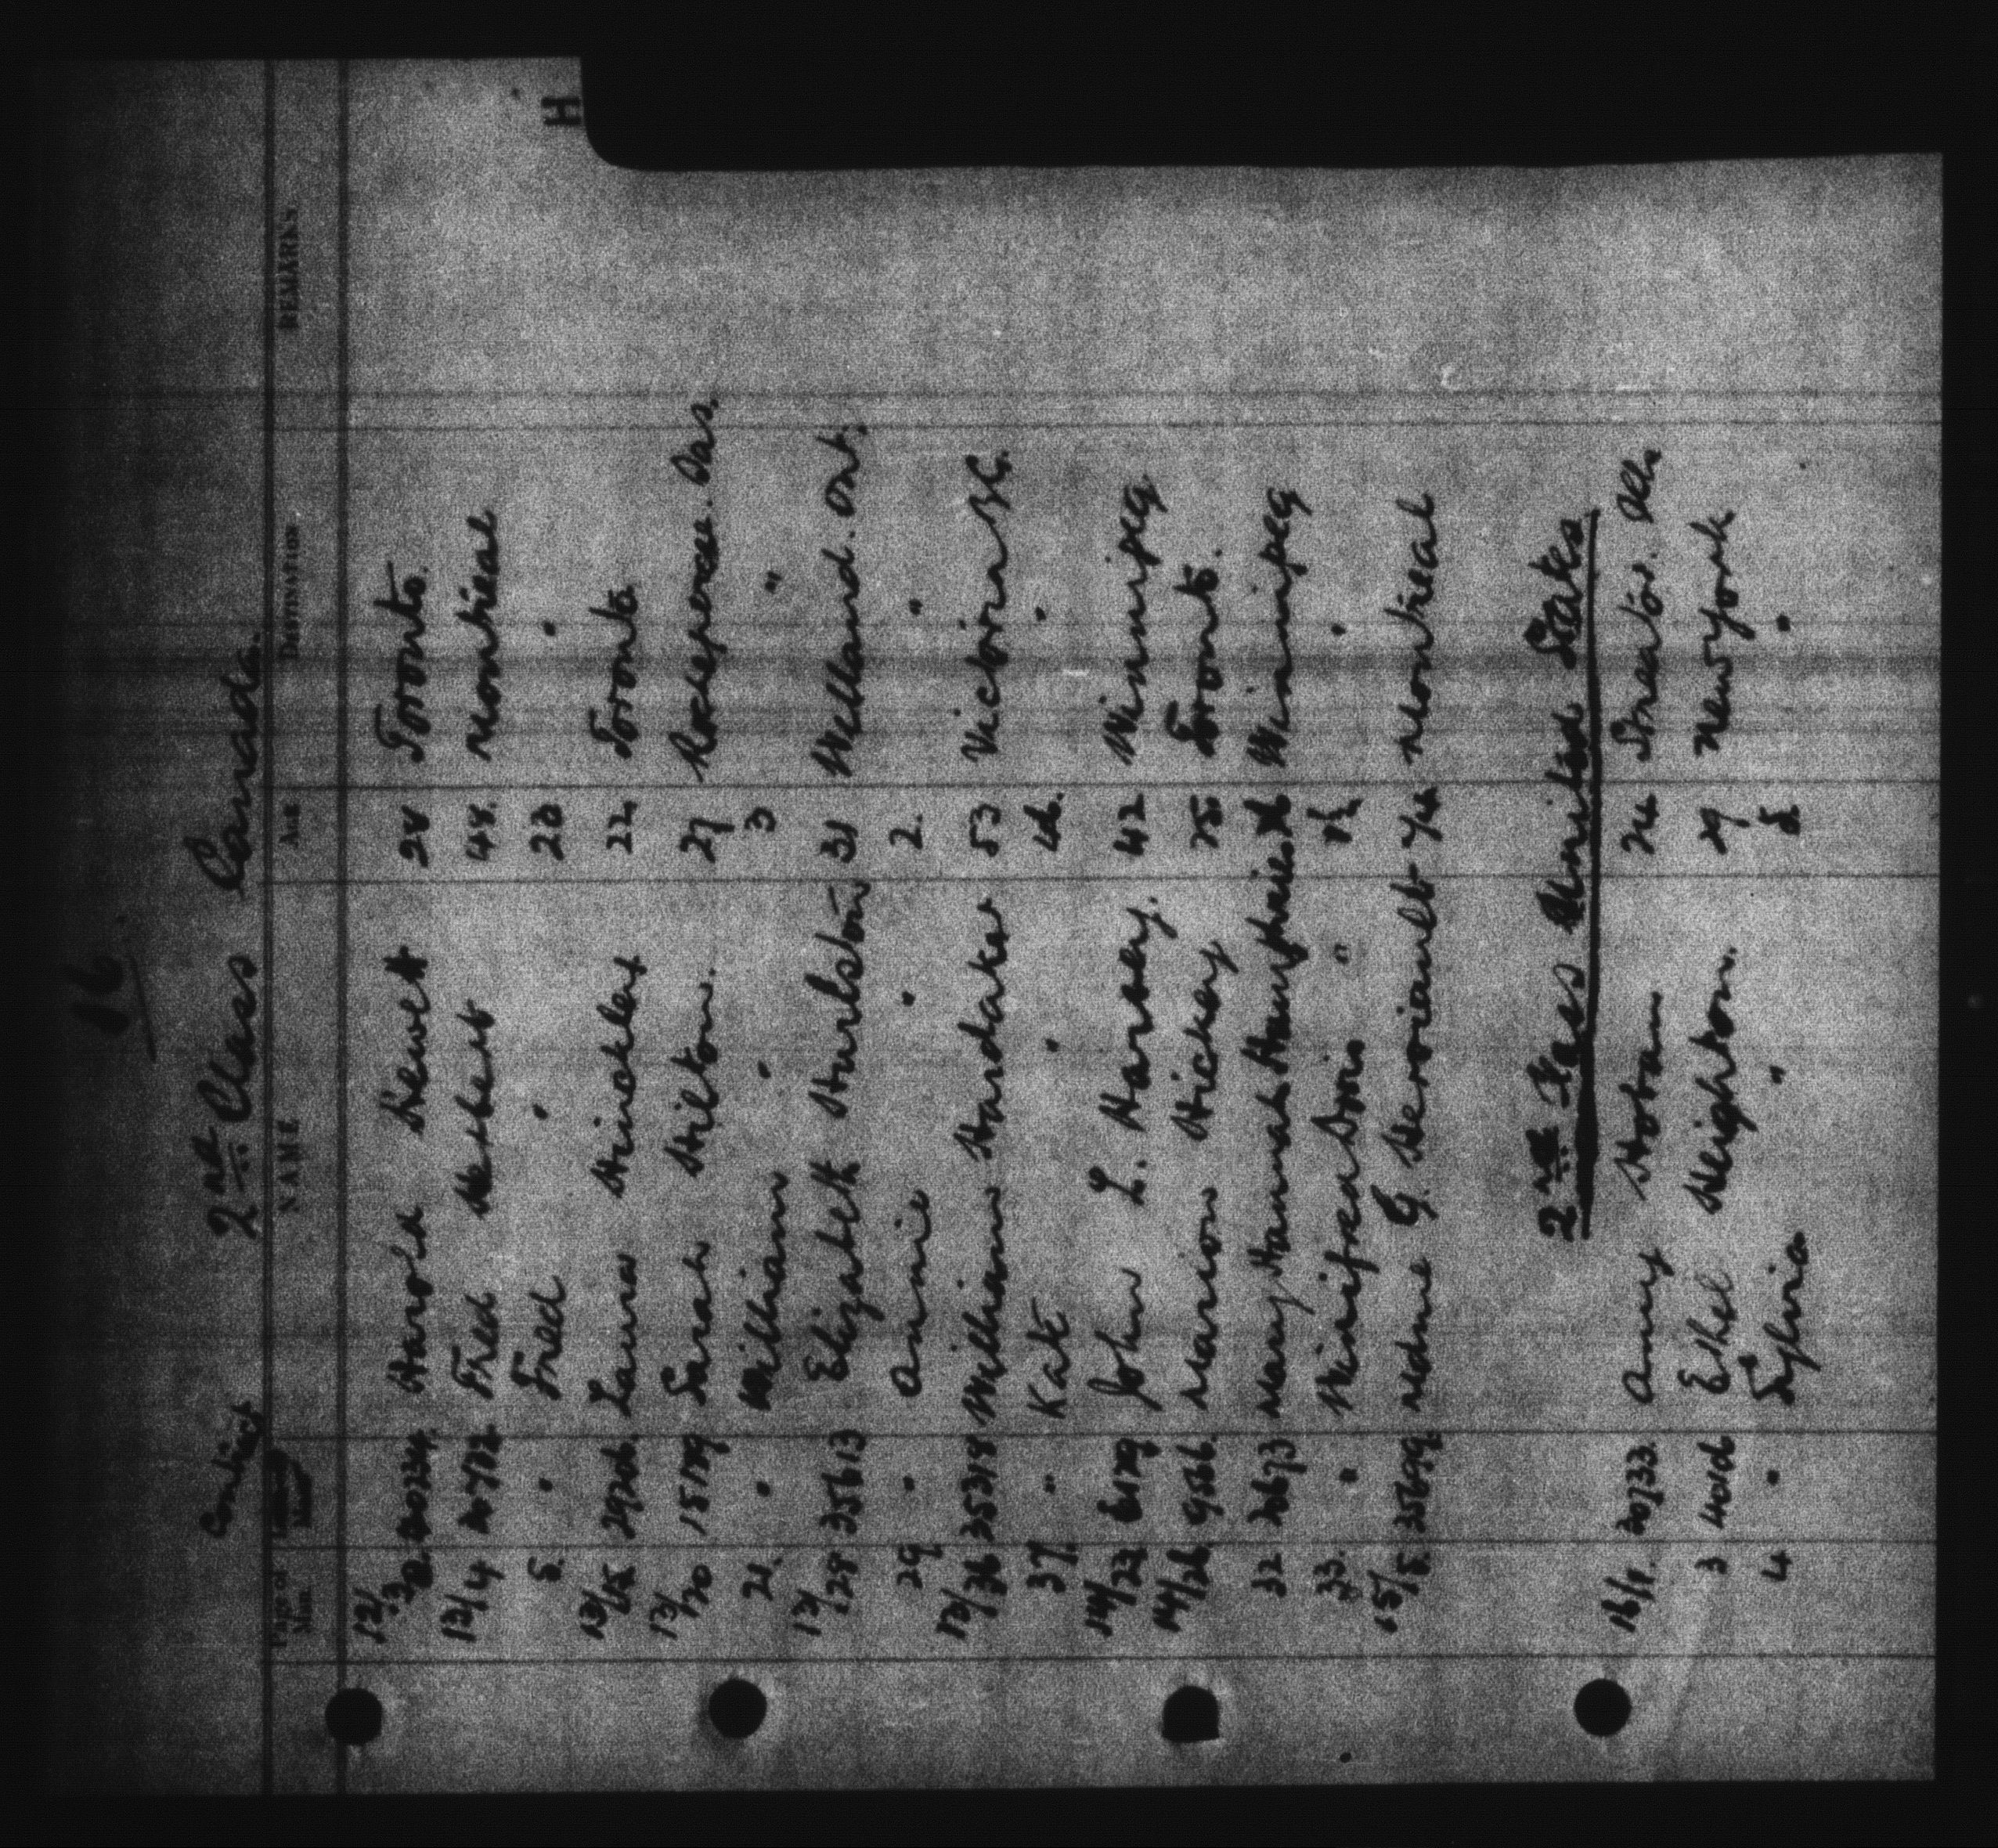 16
2nd Class Canada.
Contract
Page of Man. NAME AGE DESTINATION REMARKS
H
12/3 20234 Harold Hewett 24 Toronto.
13/4 20472 Fred Herbert 48 Montreal
5. " Fred " 23 "
13/15 29206 Laura Hinchley 22 Toronto
13/20 15189 Sarah Hilton. 27 Sas.
21. " William " 3 "
13/28 35613 Elizabeth Hurlston 31 Welland. Ont.
29. " Annie " 2. "
13/36 35318 William Hardaker 53 Victoria BC.
37. " Kate " "
14/23 6189 John L. Harvey. 42 Winnipeg
14/26 9566. Marion Hickey 25 Toronto.
32 20673 Mary Hannah Humphries Winnipeg
33. " Winifred Doris " "
15/5. 35699 Mdme G. Heroriault Montreal
2nd Class United States
16/1. 30733 Amy Hoban 24 Streator. Ills
3 4016 Ethel Heighton. 29 New York
4 " Sylvia " "